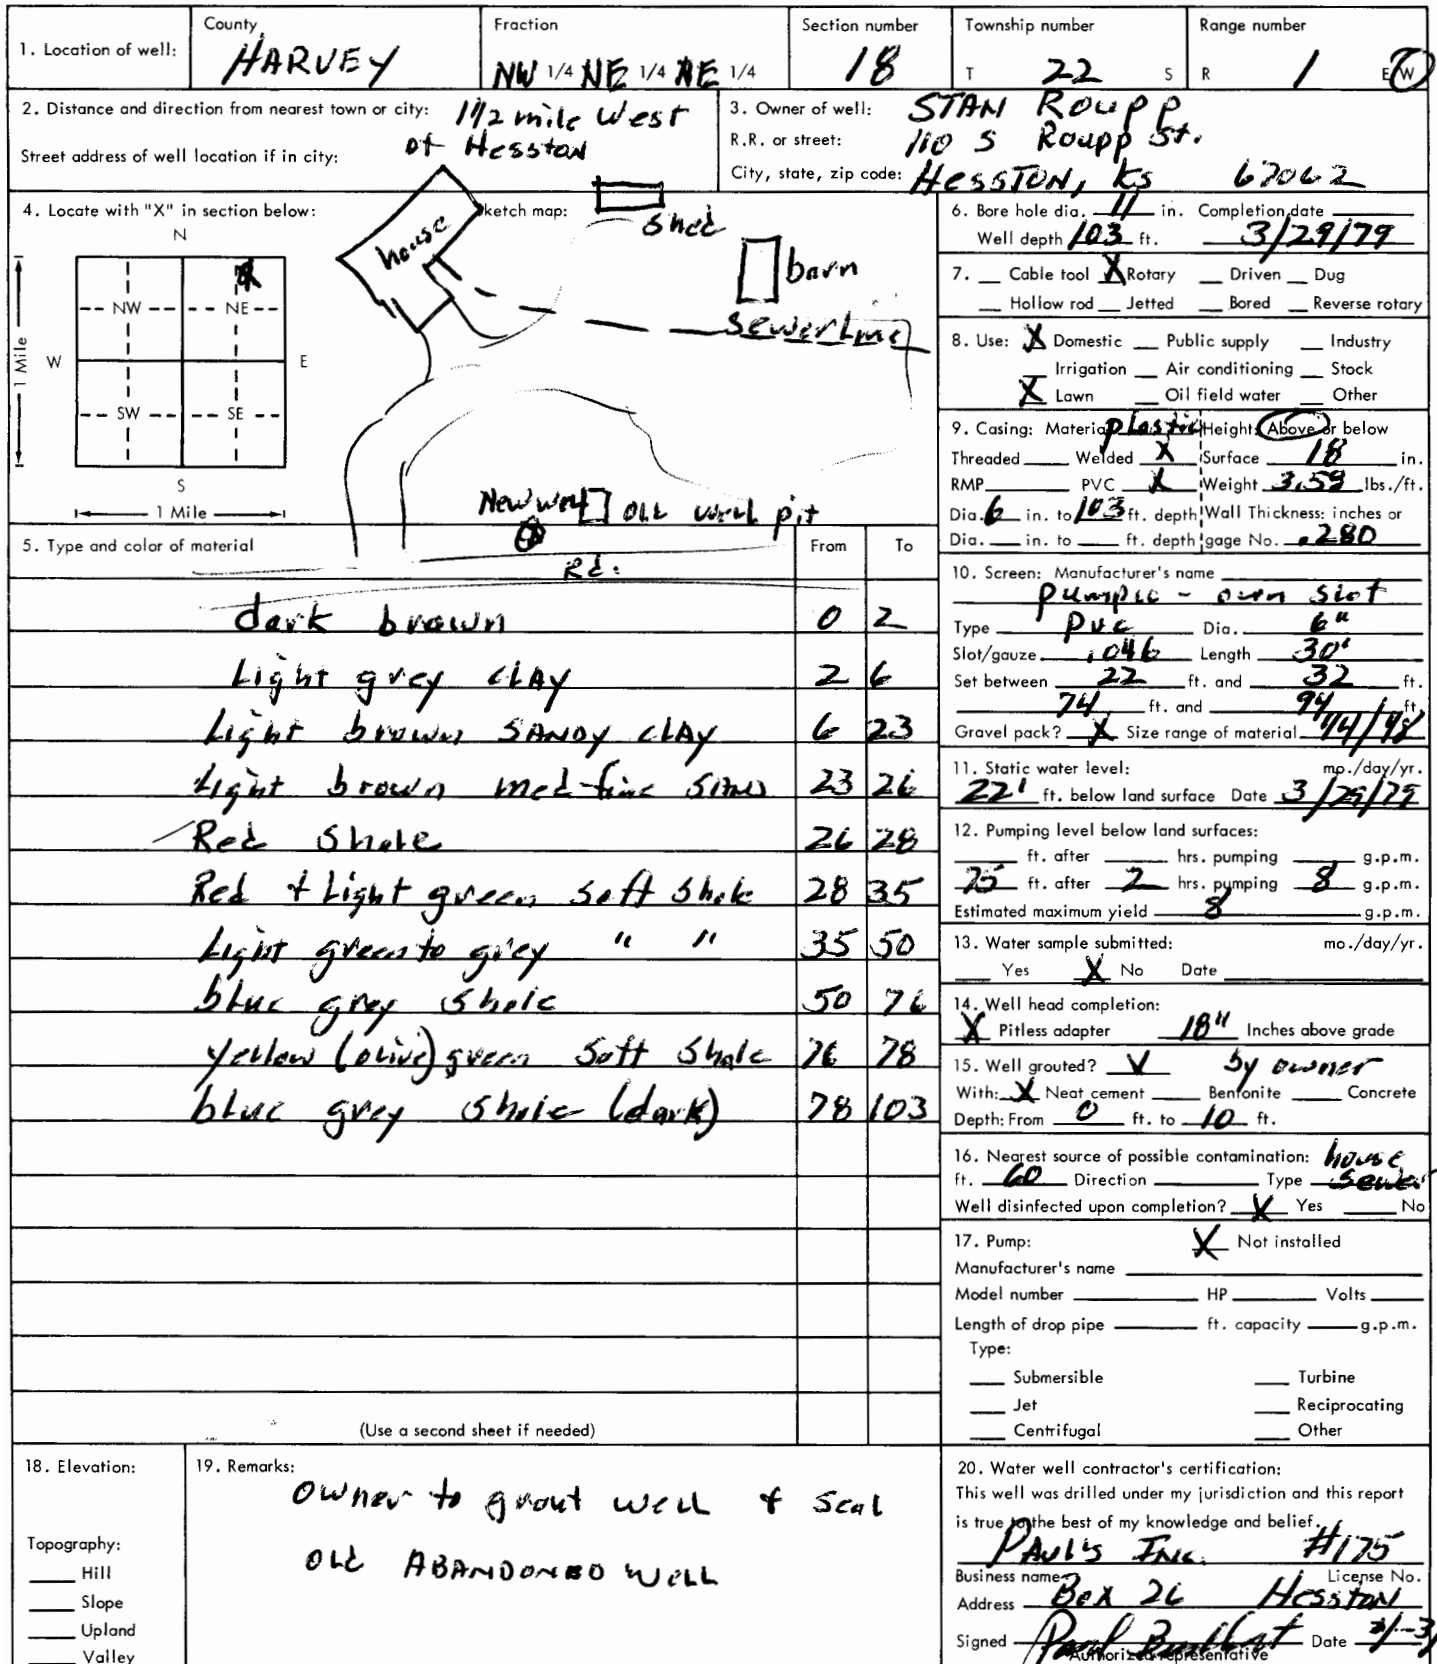 1. Location of well:
County
HARVEY
Fraction
NW 1/4 NE 1/4 NE 1/4
Section number
18
Township number
T 22 S
Range number
R 1 E W
2. Distance and direction from nearest town or city: 1 1/2 mile West
of Hesston
Street address of well location if in city:
3. Owner of well: STAN Roupp
R.R. or street: 110 S Roupp St.
City, state, zip code: HESSTON, Ks 67062
4. Locate with "X" in section below:
N
NW NE
W E
SW SE
S
1 Mile
1 Mile
Sketch map:
house
Shed
barn
Sewer Line
New well
Old well pit
Rd.
5. Type and color of material From To
dark brown 0 2
Light grey CLAY 2 6
Light brown SANDY CLAY 6 23
Light brown med-fine sand 23 26
Red Shale 26 28
Red + Light green soft Shale 28 35
Light green to grey " " 35 50
blue grey Shale 50 76
yellow (olive) green Soft Shale 76 78
blue grey Shale (dark) 78 103
(Use a second sheet if needed)
6. Bore hole dia. 11 in. Completion date
Well depth 103 ft. 3/29/79
7. Cable tool X Rotary Driven Dug
Hollow rod Jetted Bored Reverse rotary
8. Use: X Domestic Public supply Industry
Irrigation Air conditioning Stock
X Lawn Oil field water Other
9. Casing: Material plastic Height: Above or below
Threaded Welded X Surface 18 in.
RMP PVC X Weight 3.59 lbs./ft.
Dia. 6 in. to 103 ft. depth Wall Thickness: inches or
Dia. in. to ft. depth gage No. .280
10. Screen: Manufacturer's name
pumpco - own slot
Type PVC Dia. 6"
Slot/gauze .046 Length 30'
Set between 22 ft. and 32 ft.
74 ft. and 94 ft.
Gravel pack? X Size range of material
11. Static water level: mo./day/yr.
22' ft. below land surface Date 3/29/79
12. Pumping level below land surfaces:
ft. after hrs. pumping g.p.m.
75 ft. after 2 hrs. pumping 8 g.p.m.
Estimated maximum yield 8 g.p.m.
13. Water sample submitted: mo./day/yr.
Yes X No Date
14. Well head completion:
X Pitless adapter 18" Inches above grade
15. Well grouted? by owner
With: X Neat cement Bentonite Concrete
Depth: From 0 ft. to 10 ft.
16. Nearest source of possible contamination: house
ft. 60 Direction Type sewer
Well disinfected upon completion? X Yes No
17. Pump: X Not installed
Manufacturer's name
Model number HP Volts
Length of drop pipe ft. capacity g.p.m.
Type:
Submersible Turbine
Jet Reciprocating
Centrifugal Other
18. Elevation:
Topography:
Hill
Slope
Upland
Valley
19. Remarks:
Owner to grout well + seal
Old ABANDONED WELL
20. Water well contractor's certification:
This well was drilled under my jurisdiction and this report
is true to the best of my knowledge and belief.
PAUL'S INC. #175
Business name License No.
Address Box 26 Hesston
Signed Paul Date
Authorized representative